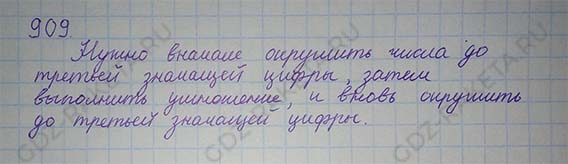 909.
Нужно вначале округлить числа до
третьей значащей цифры, затем
выполнить умножение, и вновь округлить
до третьей значащей цифры.